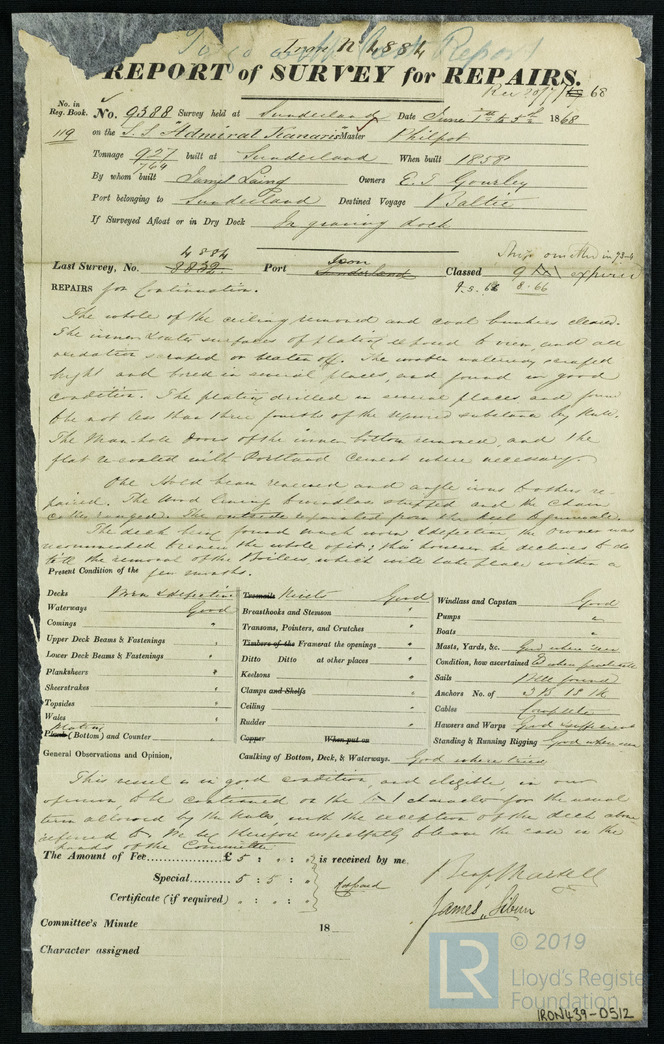 To go with Report
Iron No 4884
REPORT of SURVEY for REPAIRS.
Rec 20/7/68
No. in Reg. Book. No. 9388 Survey held at Sunderland Date June 1st to 5th 1868
119 on the S.S "Admiral Kanaris" Master Philpot
Tonnage 927/764 built at Sunderland When built 1858
By whom built James Laing Owners E. T. Gourley
Port belonging to Sunderland Destined Voyage Baltic
If Surveyed Afloat or in Dry Dock In graving dock
4884
Last Survey, No. 8832 Port Iron Sunderland Classed 9 A1 expired
9.3.66 8.66
REPAIRS for Continuation.
The whole of the ceiling removed and coal bunkers cleared.
The inner & outer surfaces of plating exposed to view, and all
oxidation scraped or beaten off. The wooden waterways scraped
bright and bored in several places, and found in good
condition. The plating drilled in several places and found
to be not less than three fourths of the required substance by Rule.
The Man-hole doors of the inner bottom removed, and the
flat recoated with Portland cement where necessary.
One Hold beam renewed and angle irons to others re-
paired. The Wood lining stripped and the Chain
cables ranged. The outside repainted from the keel to gunwale.
The deck being found much worn & defective, the owner was
recommended to renew the whole of it; this however he declines to do
till the removal of the Boilers, which will take place within a
few months.
Present Condition of the
Decks Worn & defective
Waterways Good
Comings "
Upper Deck Beams & Fastenings "
Lower Deck Beams & Fastenings "
Planksheers "
Sheerstrakes "
Topsides "
Wales "
Plating
Plank (Bottom) and Counter "
Treenails Rivets Good
Breasthooks and Stemson "
Transoms, Pointers, and Crutches "
Timbers of the Frames at the openings "
Ditto Ditto at other places "
Keelsons "
Clamps and Shelfs "
Ceiling "
Rudder "
Copper When put on
Windlass and Capstan Good
Pumps "
Boats "
Masts, Yards, &c. Good where seen
Condition, how ascertained
Sails Well found
Anchors No. of 3 B 1 S 1 K
Cables Complete
Hausers and Warps Good & sufficient
Standing & Running Rigging Good where seen
General Observations and Opinion, Caulking of Bottom, Deck, & Waterways. Good where tried
This vessel is in good condition, and eligible, in our
opinion, to be continued on the A 1 character for the usual
term allowed by the Rules, with the exception of the deck above
referred to. We beg therefore respectfully to leave the case in the
hands of the Committee
The Amount of Fee............... £ 5 : " : " is received by me.
Special......... 5 : 5 : "
Certificate (if required) " : " : "
James Sibun
Committee's Minute 18
Character assigned
LR © 2019
Lloyd's Register
Foundation
IRON439-0512